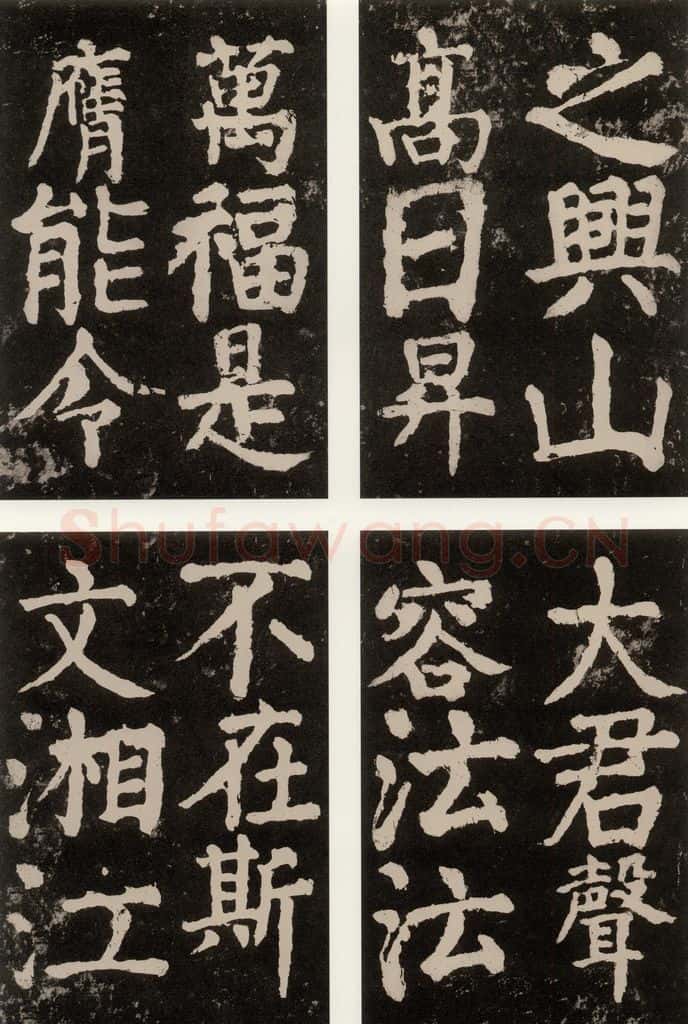 之興山
髙日昇
萬福是
膺能令
大君聲
容沄沄
不在斯
文湘江
Shufawang.CN